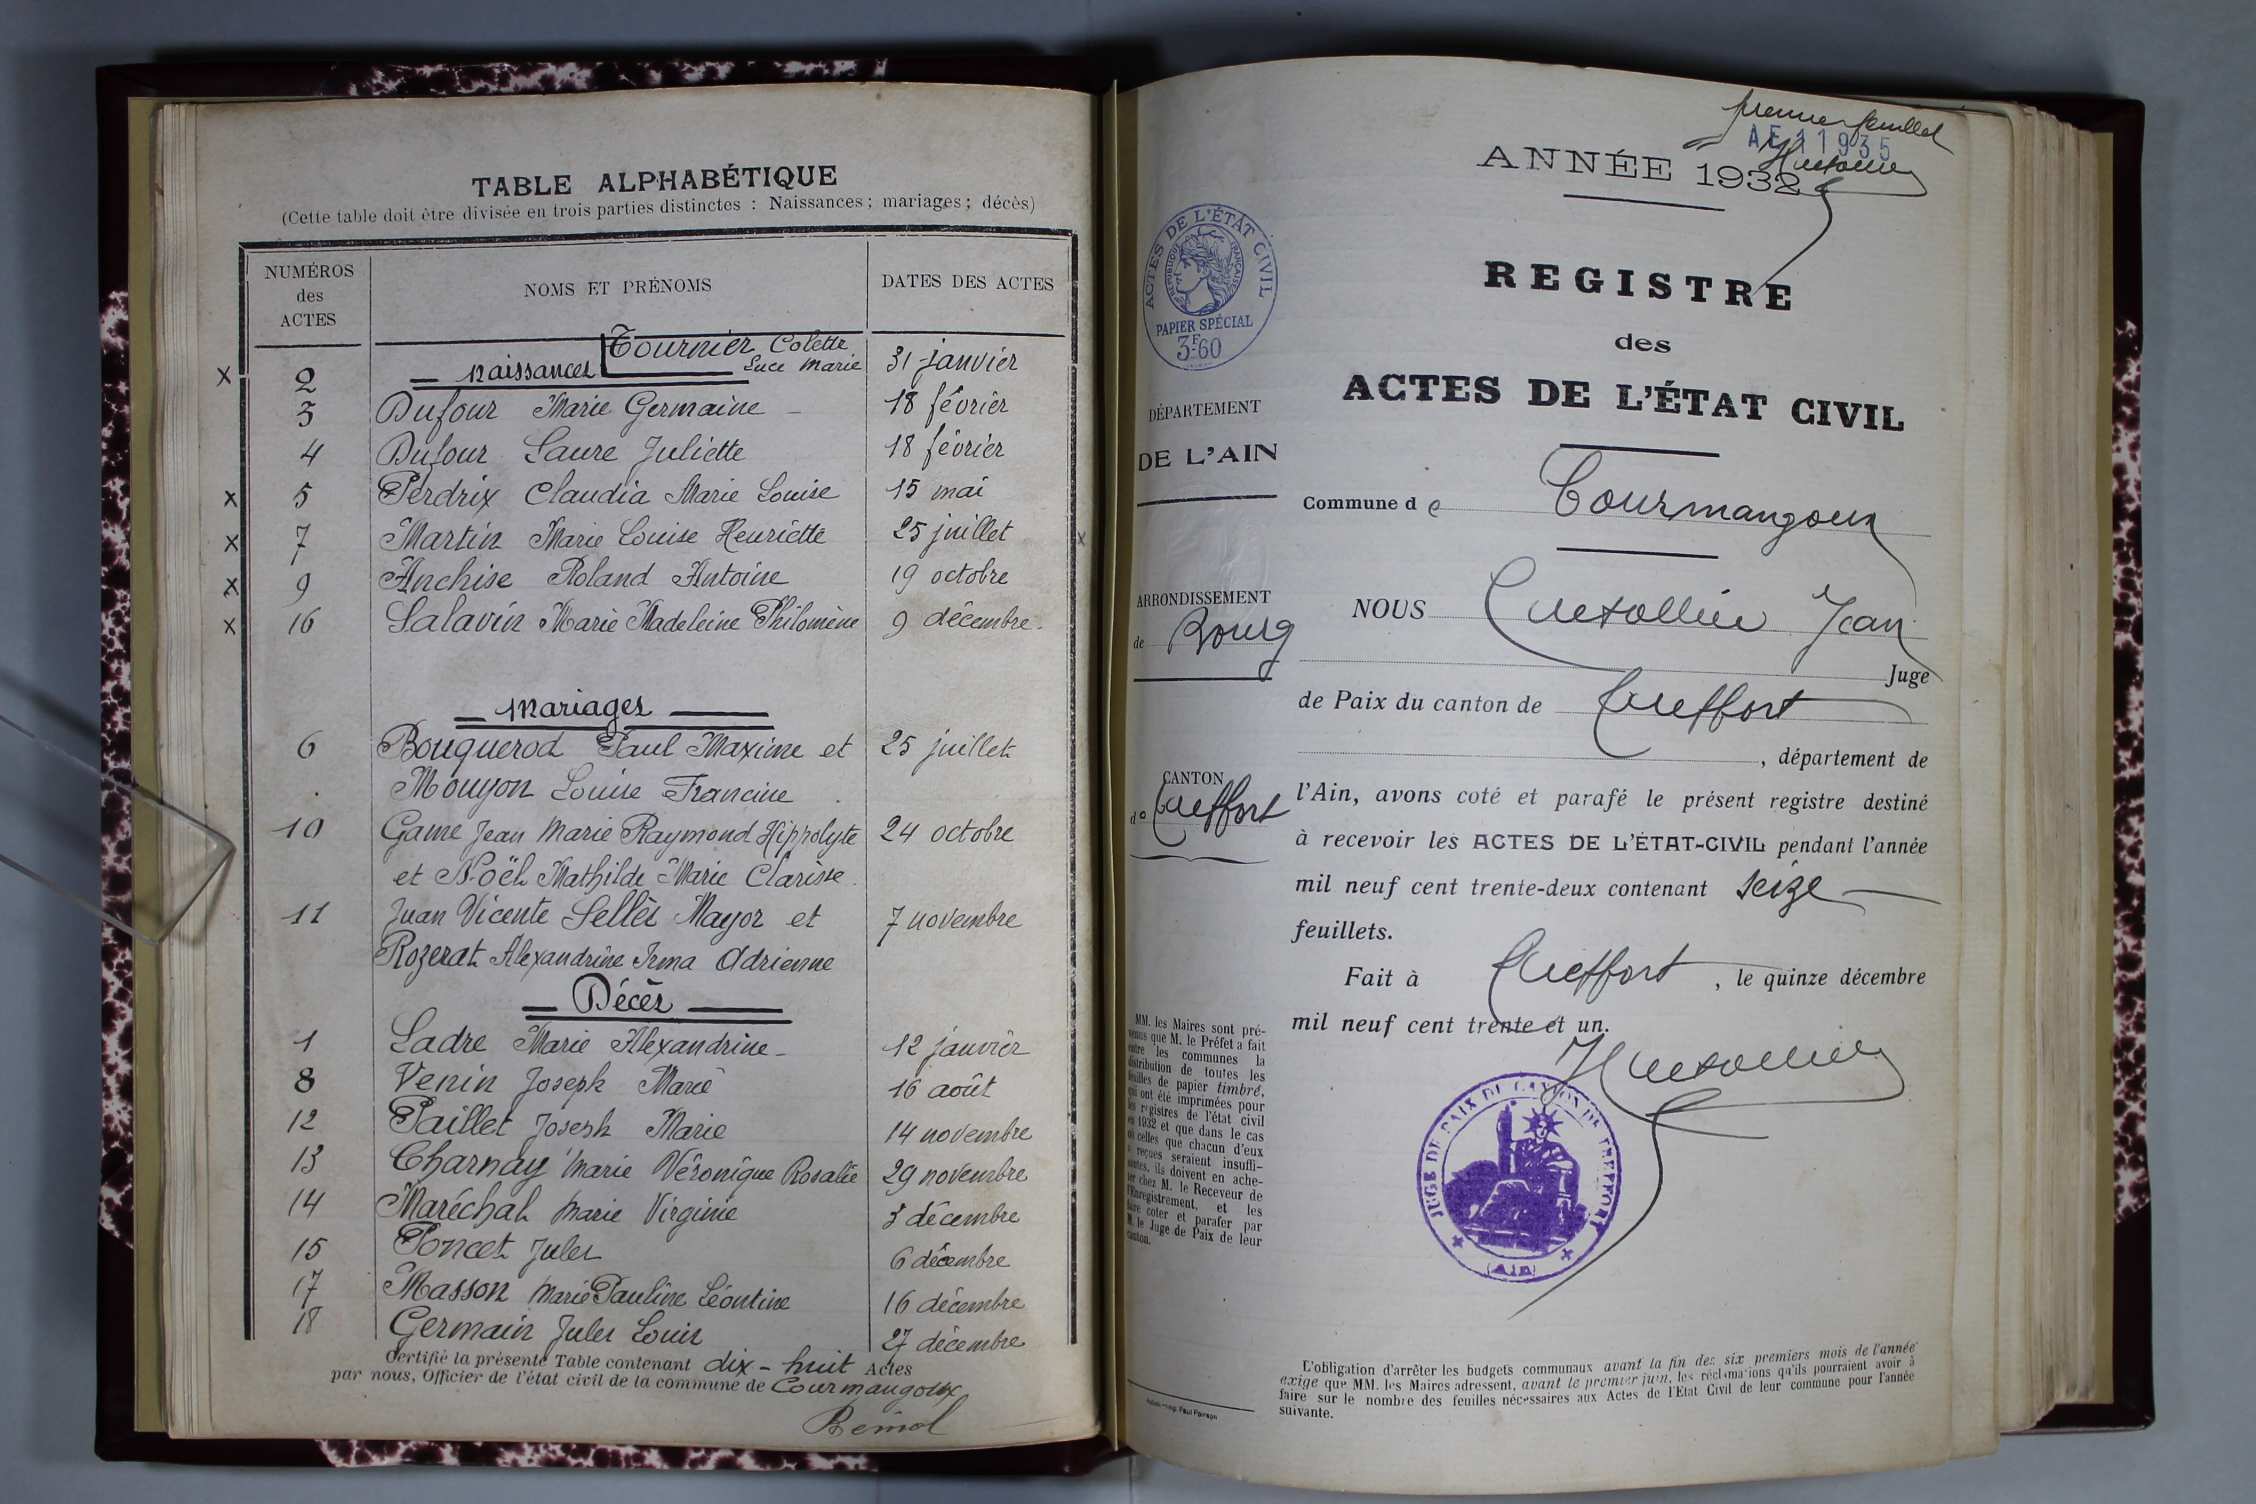 TABLE ALPHABÉTIQUE
(Cette table doit être divisée en trois parties distinctes : Naissances ; mariages ; décès)
NUMÉROS des ACTES
NOMS ET PRÉNOMS
DATES DES ACTES
Naissances
x 2 Tournier Colette Luce Marie 31 janvier
3 Dufour Marie Germaine - 18 février
4 Dufour Laure Juliette 18 février
x 5 Perdrix Claudia Marie Louise 15 mai
x 7 Martin Marie Louise Henriette 25 juillet x
x 9 Anchise Roland Antoine 19 octobre
x 16 Salavin Marie Madeleine Philomène 9 décembre.
Mariages
6 Bouquerod Paul Maxime et 25 juillet
Mouyon Louise Francine
10 Game Jean Marie Raymond Hippolyte 24 octobre
et Noël Mathilde Marie Clarisse.
11 Juan Vicente Sellès Mayor et 7 novembre
Rozerat Alexandrine Irma Adrienne
Décès
1 Ladre Marie Alexandrine - 12 janvier
8 Venin Joseph Marie 16 août
12 Paillet Joseph Marie 14 novembre
13 Charnay Marie Véronique Rosalie 29 novembre
14 Maréchal Marie Virginie 3 décembre
15 Poncet Jules 6 décembre
17 Masson Marie Pauline Léontine 16 décembre
18 Germain Jules Louis 27 décembre
Certifié la présente Table contenant dix-huit Actes
par nous, Officier de l'état civil de la commune de Courmangoux
premier feuillet
AE 11935
ANNÉE 1932
ACTES DE L'ÉTAT CIVIL
RÉPUBLIQUE FRANÇAISE
PAPIER SPÉCIAL
3F60
REGISTRE
des
ACTES DE L'ÉTAT CIVIL
DÉPARTEMENT
DE L'AIN
Commune de Courmangoux
ARRONDISSEMENT
de Bourg
NOUS Cuetallier Jean
Juge
de Paix du canton de Treffort
, département de
CANTON
de Treffort
l'Ain, avons coté et parafé le présent registre destiné
à recevoir les ACTES DE L'ÉTAT-CIVIL pendant l'année
mil neuf cent trente-deux contenant seize
feuillets.
Fait à Treffort, le quinze décembre
mil neuf cent trente et un.
JUGE DE PAIX DU CANTON DE TREFFORT
(AIN)
MM. les Maires sont pré-
venus que M. le Préfet a fait
entre les communes la
distribution de toutes les
feuilles de papier timbré,
qui ont été imprimées pour
les registres de l'état civil
en 1932 et que dans le cas
où celles que chacun d'eux
a reçues seraient insuffi-
santes, ils doivent en ache-
ter chez M. le Receveur de
l'Enregistrement, et les
faire coter et parafer par
M. le Juge de Paix de leur
canton.
L'obligation d'arrêter les budgets communaux avant la fin des six premiers mois de l'année
exige que MM. les Maires adressent, avant le premier juin, les réclamations qu'ils pourraient avoir à
faire sur le nombre des feuilles nécessaires aux Actes de l'Etat Civil de leur commune pour l'année
suivante.